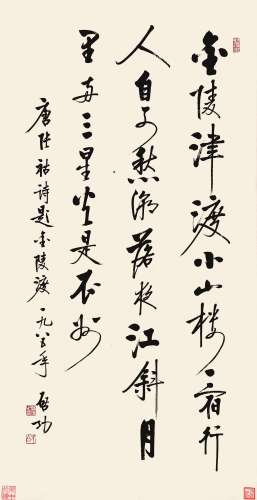 金陵津渡小山樓一宿行
人自可愁潮落夜江斜月
里兩三星火是瓜州
唐張祜詩題金陵渡一九八年 启功